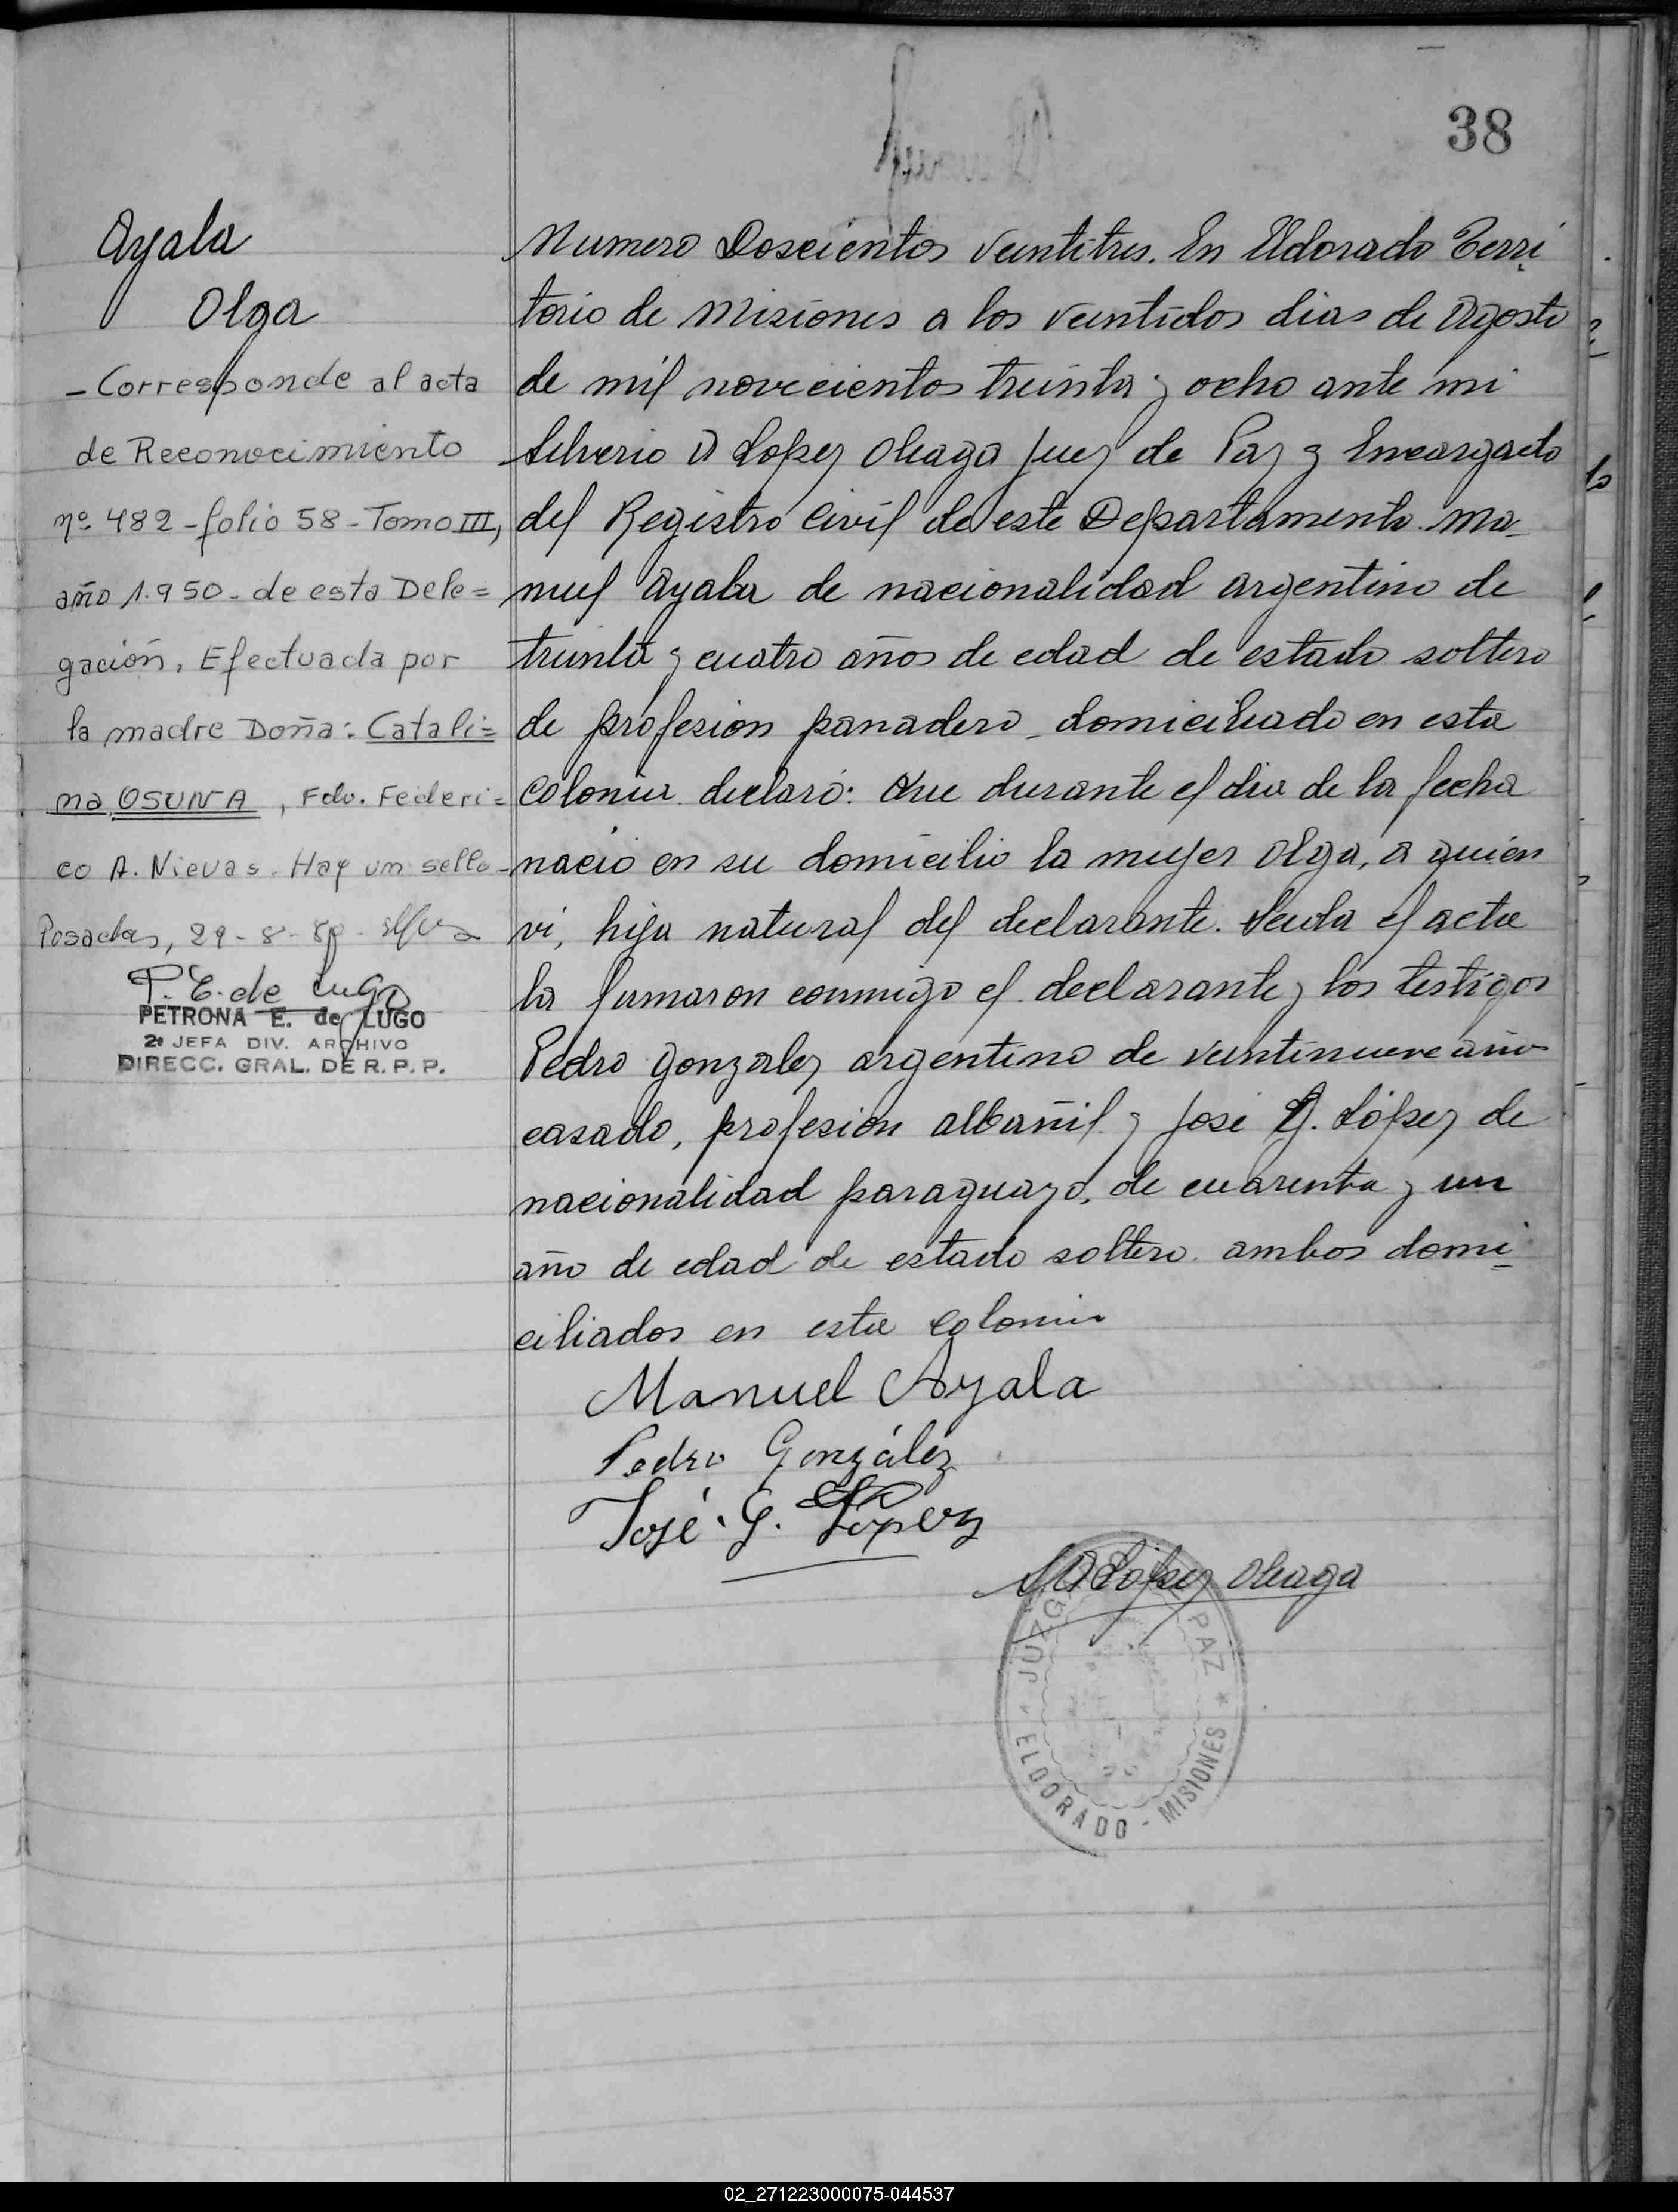 38
Ayala
Olga
- Corresponde al acta
de Reconocimiento
nº 482 - folio 58 - Tomo III,
año 1.950 - de esta Dele=
gación, Efectuada por
la madre Doña: Catali=
na OSUNA, Fdo. Federi=
co A. Nievas. Hay un sello -
Posadas, 29-8-80
P. E. de Lugo
PETRONA E. de LUGO
2ª JEFA DIV. ARCHIVO
DIRECC. GRAL. DE R. P. P.
Numero Doscientos veintitres. En Eldorado Terri
torio de Misiones a los veintidos dias de Agosto
de mil novecientos treinta y ocho ante mi
Silverio D Lopez Oleaga Juez de Paz y Encargado
del Registro Civil de este Departamento. Ma-
nuel Ayala de nacionalidad argentino de
treinta y cuatro años de edad de estado soltero
de profesion panadero domiciliado en esta
Colonia declaró: Que durante el dia de la fecha
nació en su domicilio la mujer Olga, a quien
vi, hija natural del declarante. Leida el acta
la firmaron conmigo el declarante y los testigos
Pedro Gonzalez argentino de veintinueve años
casado, profesion albañil y José G. López de
nacionalidad paraguayo, de cuarenta y un
año de edad de estado soltero. ambos domi
ciliados en esta Colonia
Manuel Ayala
Pedro González
José G. López
S D López Oleaga
JUZG PAZ
ELDORADO - MISIONES
02_271223000075-044537